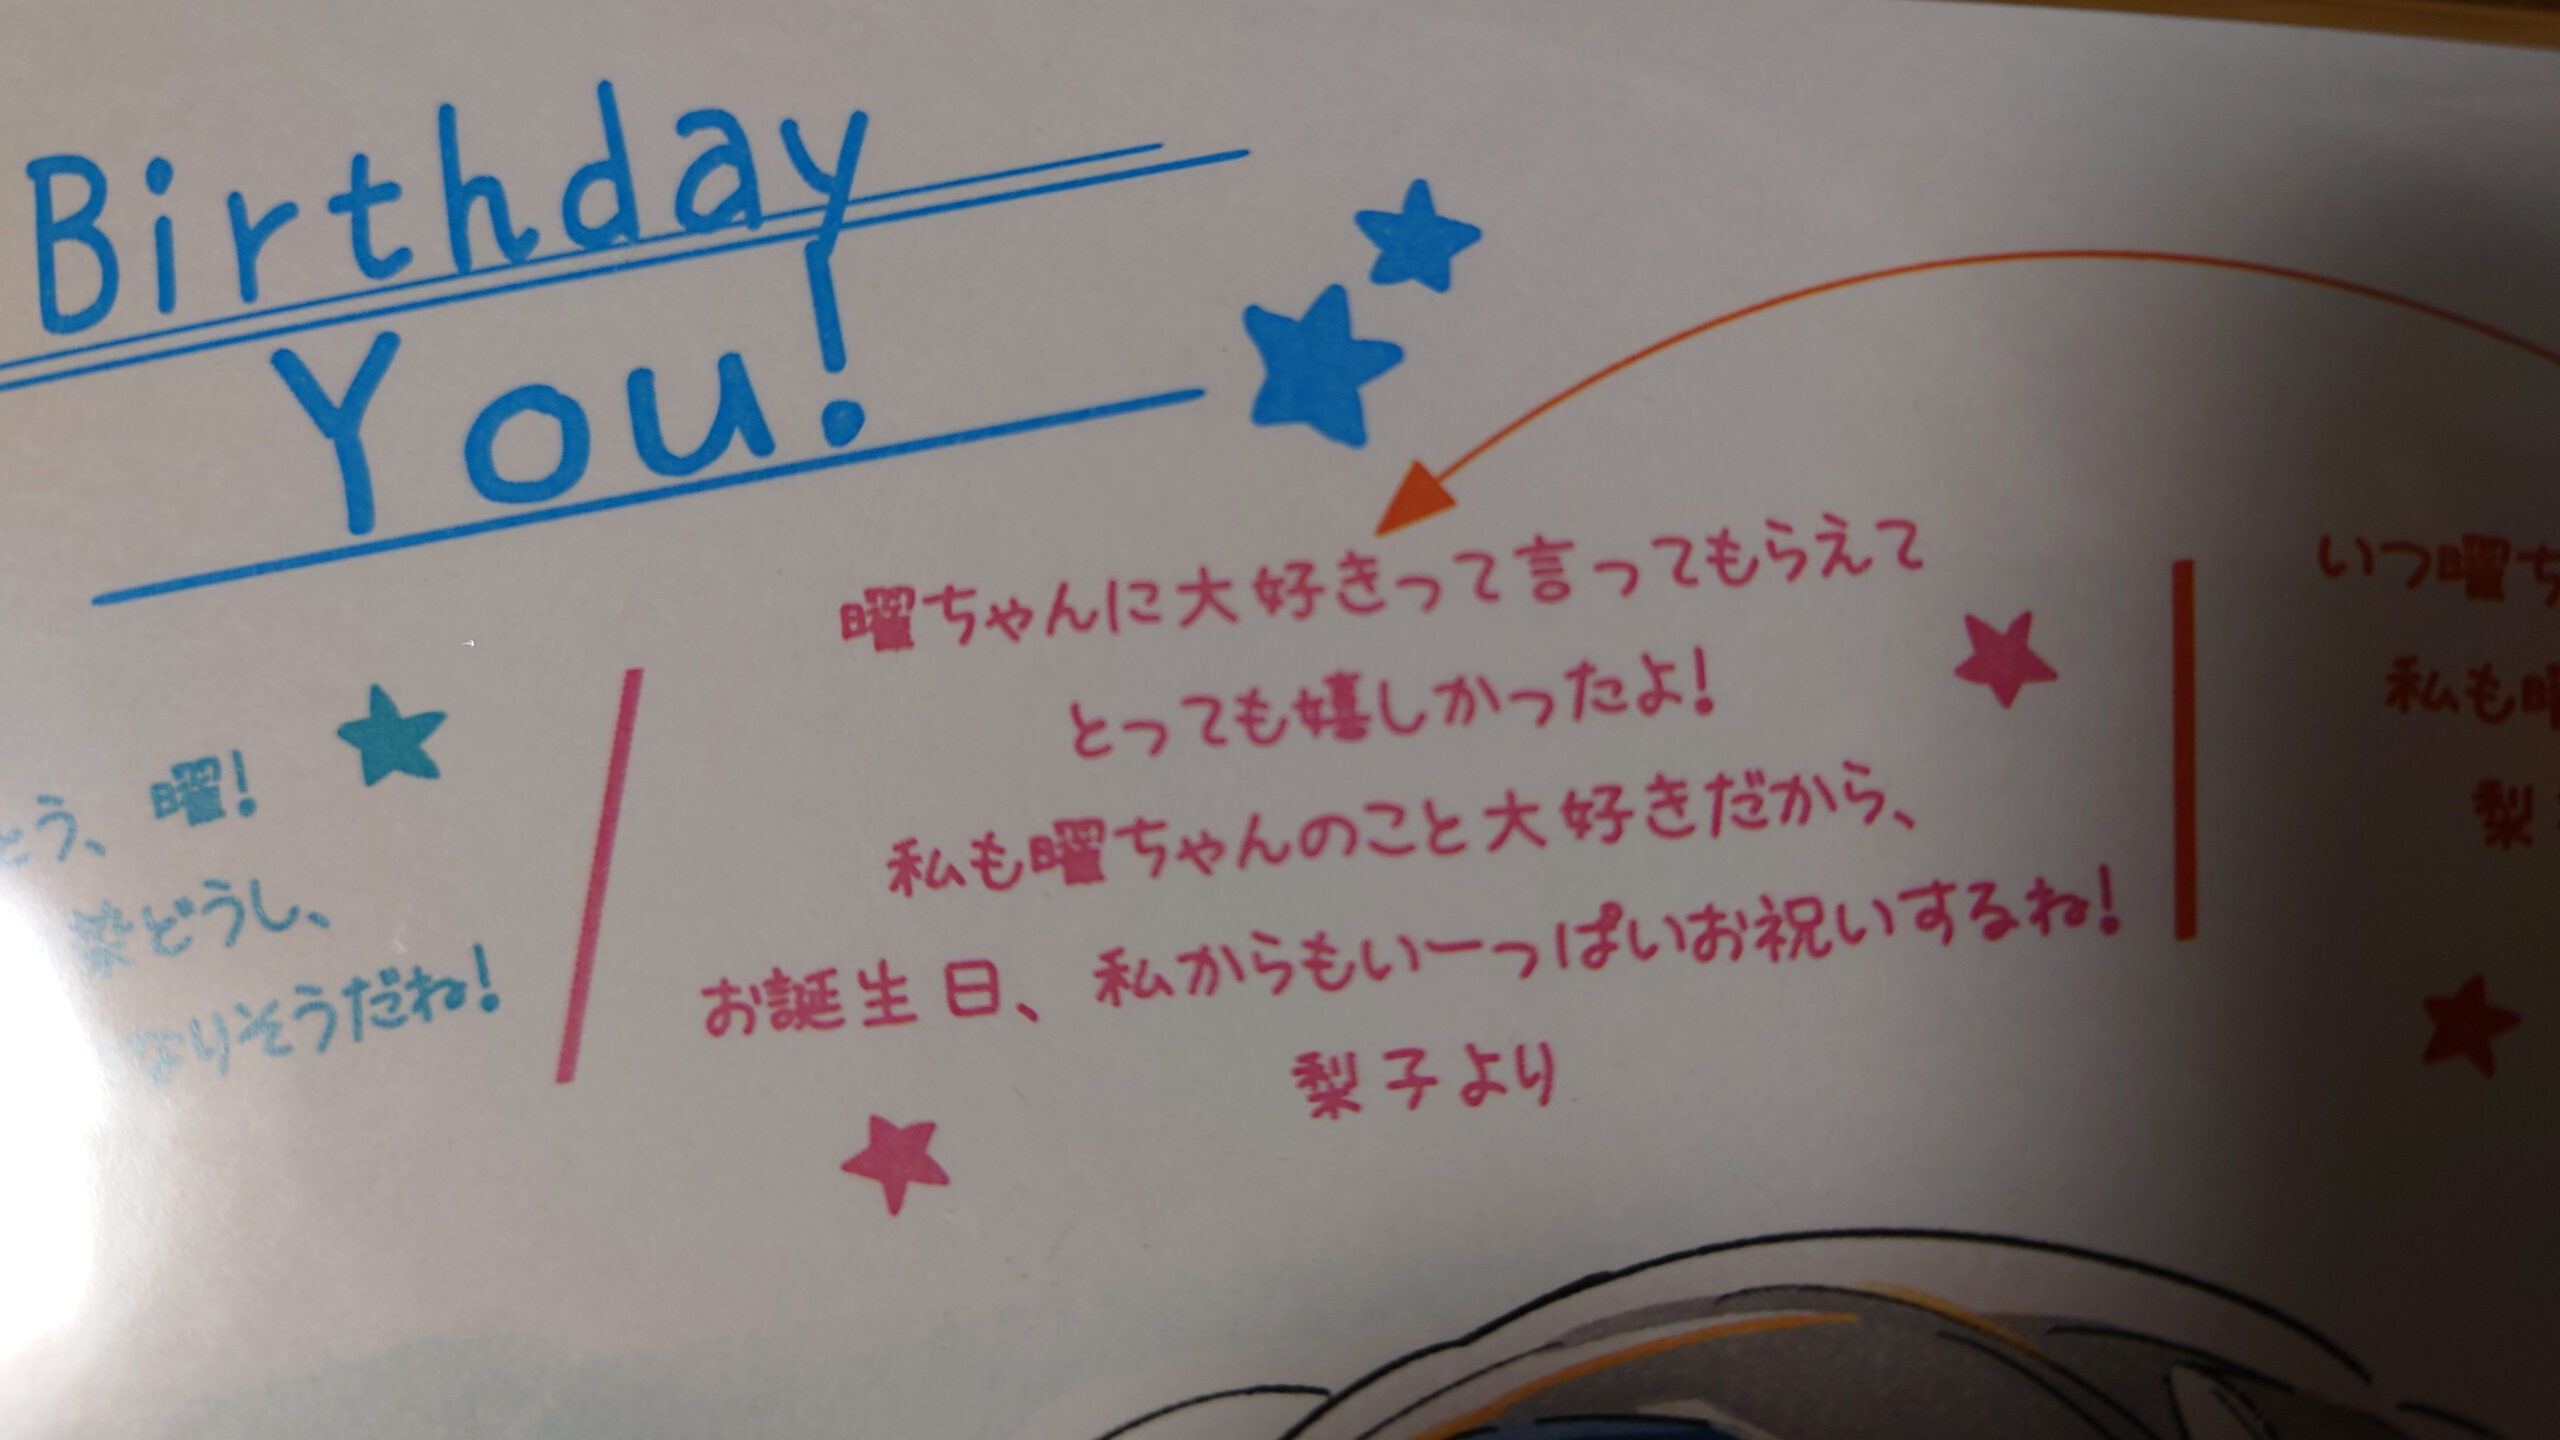 Birthday
You!
曜ちゃんに大好きって言ってもらえて
とっても嬉しかったよ!
私も曜ちゃんのこと大好きだから、
お誕生日、私からもいーっぱいお祝いするね!
梨子より
とう、曜!
染どうし、
なりそうだね!
いつ曜ち
私も曜
梨